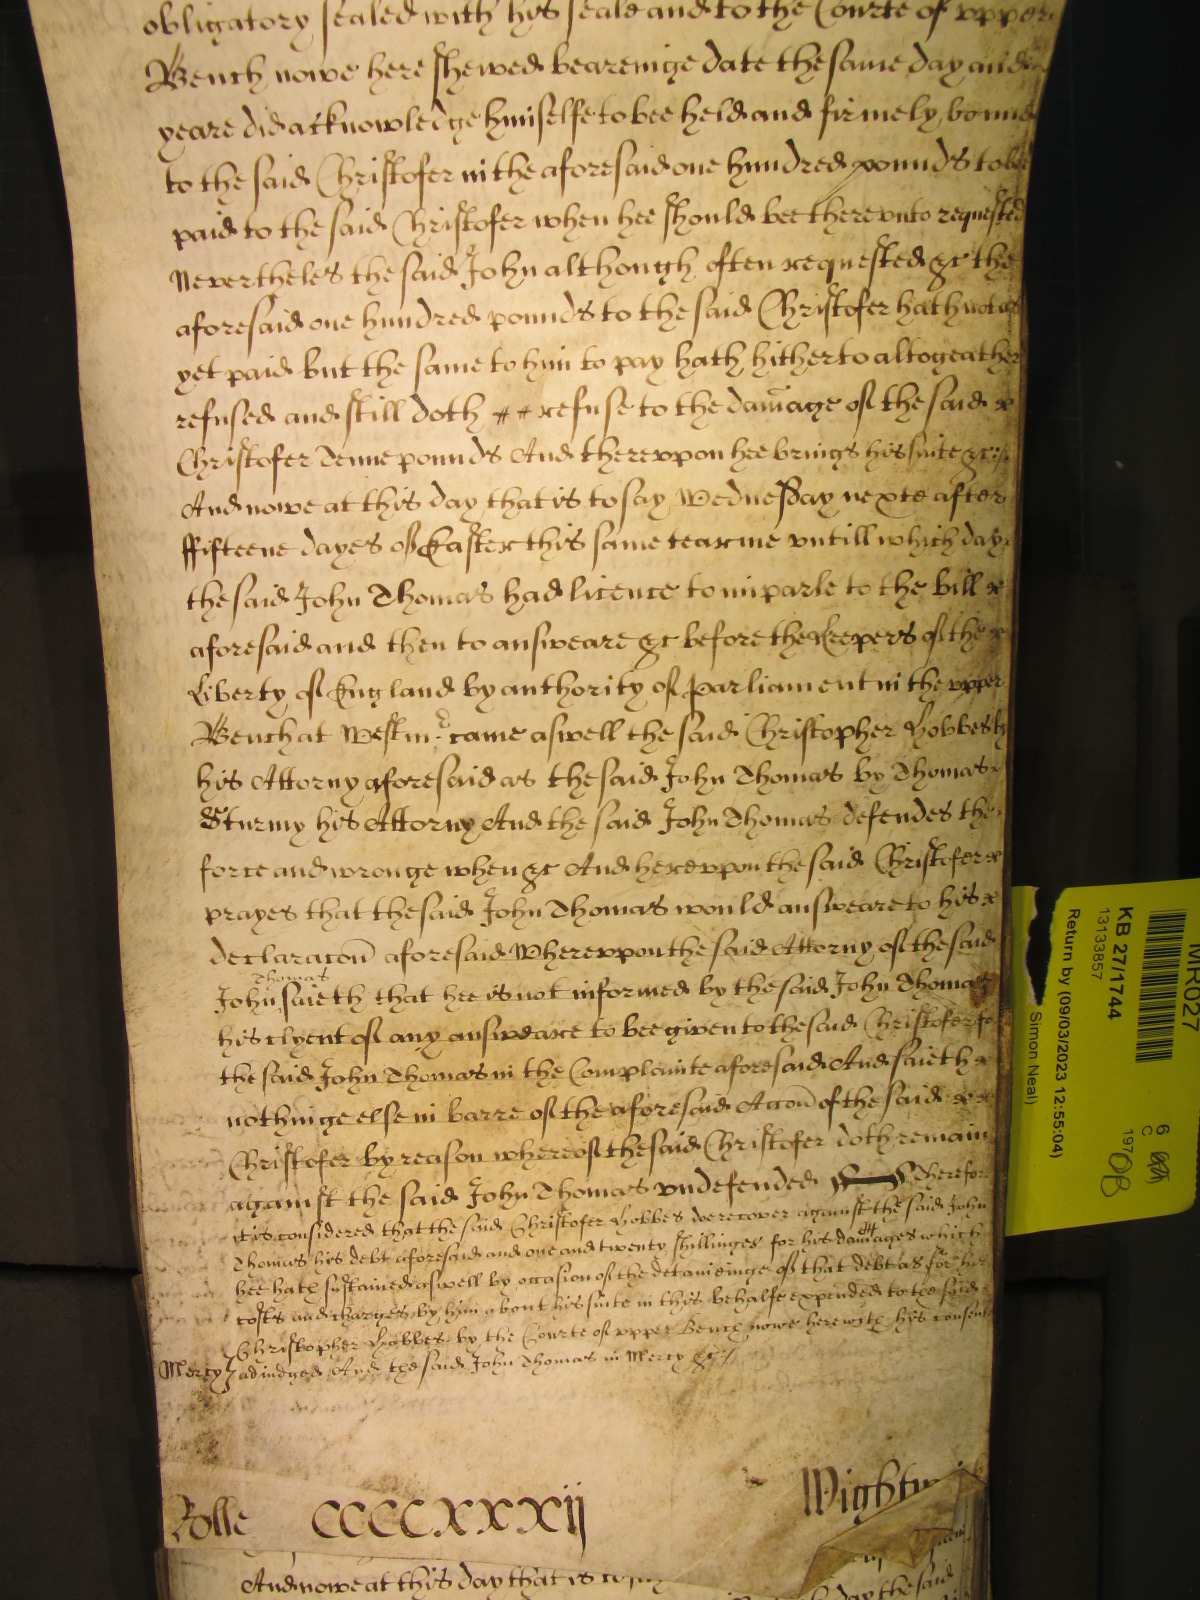 obligatory sealed with his seale and to the Courte of vpper
Bench nowe here shewed beareinge date the same day and
yeare did acknowledge himselfe to bee held and firmely bound
to the said Christofer in the aforesaid one hundred pounds to bee
paid to the said Christofer when hee should bee therevnto requested
Nevertheles the said John although often requested &c the
aforesaid one hundred pounds to the said Christofer hath not as
yet paid but the same to him to pay hath hitherto altogeather
refused and still doth refuse to the damage of the said
Christofer Tenne pounds And therevpon hee brings his suite &c
And nowe at this day that is to say Wednesday nexte after
ffifteene dayes of Easter this same tearme vntill which day
the said John Thomas had licence to imparle to the bill
aforesaid and then to answeare &c before the Keepers of the
Liberty of England by authority of Parliament in the vpper
Bench at Westm̃. came aswell the said Christopher Hobbes by
his Attorny aforesaid as the said John Thomas by Thomas
Sturmy his Attorny And the said John Thomas defendes the
force and wronge when &c And herevpon the said Christofer
prayes that the said John Thomas would answeare to his
declaracoñ aforesaid Wherevpon the said Attorny of the said
John Thomas saieth that hee is not informed by the said John Thomas
his clyent of any answeare to bee given to the said Christofer for
the said John Thomas in the Complainte aforesaid And saieth
nothinge else in barre of the aforesaid Accoñ of the said
Christofer by reason whereof the said Christofer doth remain
against the said John Thomas vndefended Therefore
it is considered that the said Christofer Hobbes doe recover against the said John
Thomas his debt aforesaid and one and twenty shillinges for his damages which
hee hath sustained aswell by occasion of the detaineinge of that debt as for his
costs and charges by him about his suite in this behalfe expended to the said
Christopher Hobbes by the Courte of vpper Bench nowe here with his consent
Mercy adiudged And the said John Thomas in Mercy &c
Rolle CCCCXXXij Wightw
And nowe at this day that is to say
day the said
MR027
KB 27/1744
13133857
Return by (09/03/2023 12:55:04)
Simon Neal)
6
C
197